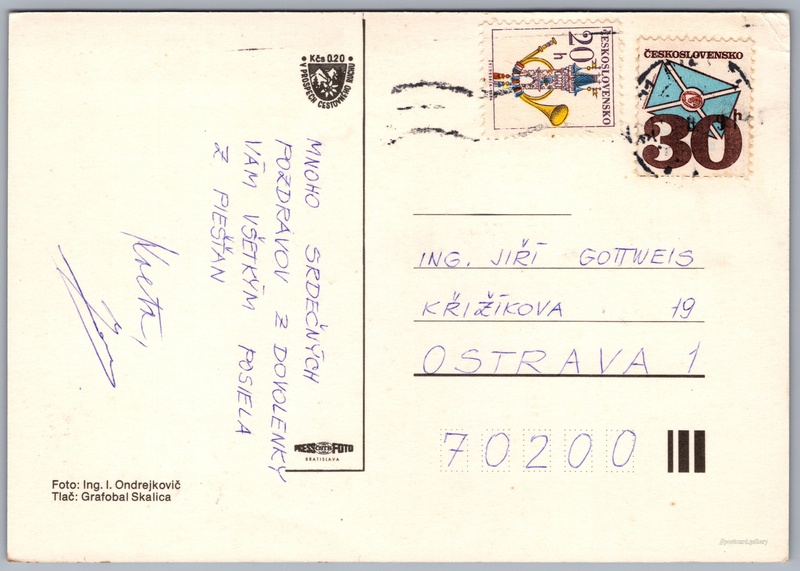 Kčs 0.20
V PROSPECH CESTOVNÉHO RUCHU
MNOHO SRDEČNÝCH
POZDRAVOV Z DOVOLENKY
VÁM VŠETKÝM POSIELA
Z PIEŠŤAN
Kveta,
PRESSFOTO
BRATISLAVA
Foto: Ing. I. Ondrejkovič
Tlač: Grafobal Skalica
ČESKOSLOVENSKO
20 h
ČESKOSLOVENSKO
30 h
ING. JIŘÍ GOTTWEIS
KŘIŽÍKOVA 19
OSTRAVA 1
70200